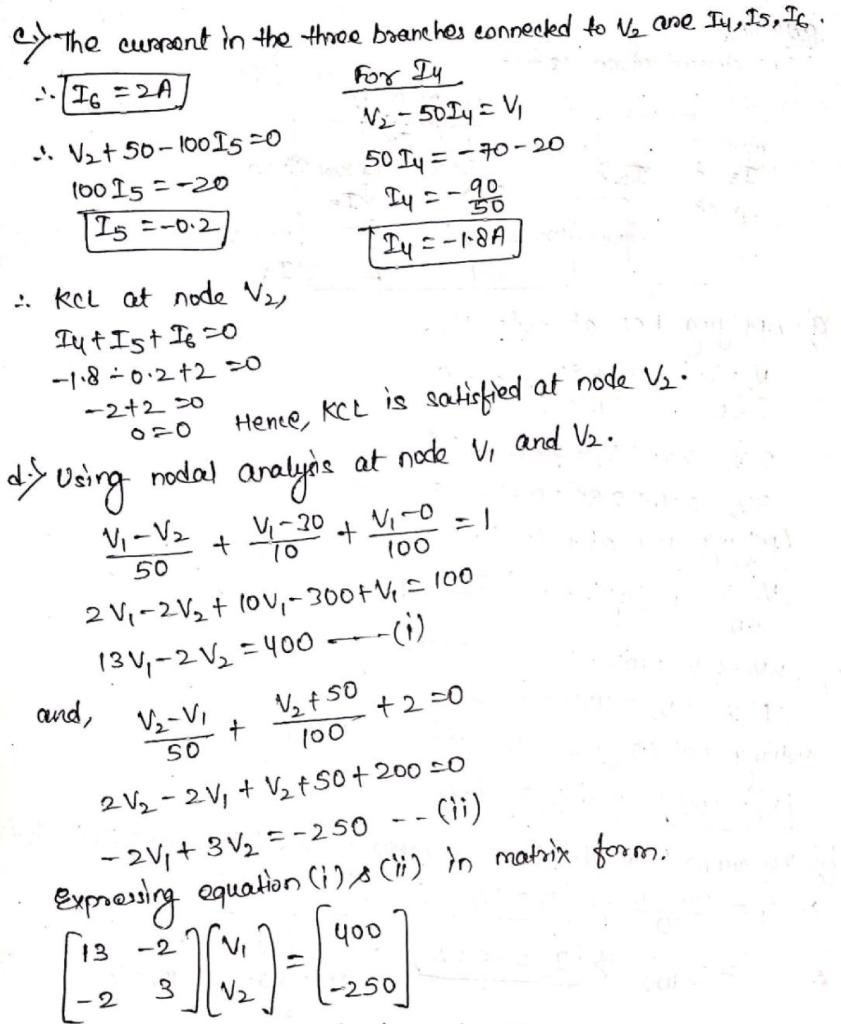 c.) The current in the three branches connected to V₂ are I₄, I₅, I₆.
∴ I₆ = 2A
∴ V₂ + 50 - 100I₅ = 0
100 I₅ = -20
I₅ = -0.2
For I₄
V₂ - 50I₄ = V₁
50 I₄ = -70 - 20
I₄ = - 90/50
I₄ = -1.8A
∴ KCL at node V₂,
I₄ + I₅ + I₆ = 0
-1.8 - 0.2 + 2 = 0
-2 + 2 = 0
0 = 0 Hence, KCL is satisfied at node V₂.
d.) Using nodal analysis at node V₁ and V₂.
(V₁ - V₂)/50 + (V₁ - 30)/10 + (V₁ - 0)/100 = 1
2V₁ - 2V₂ + 10V₁ - 300 + V₁ = 100
13V₁ - 2V₂ = 400 ---(i)
and, (V₂ - V₁)/50 + (V₂ + 50)/100 + 2 = 0
2V₂ - 2V₁ + V₂ + 50 + 200 = 0
-2V₁ + 3V₂ = -250 --(ii)
Expressing equation (i) & (ii) in matrix form.
[13 -2] [V₁] = [400]
[-2 3] [V₂] [-250]